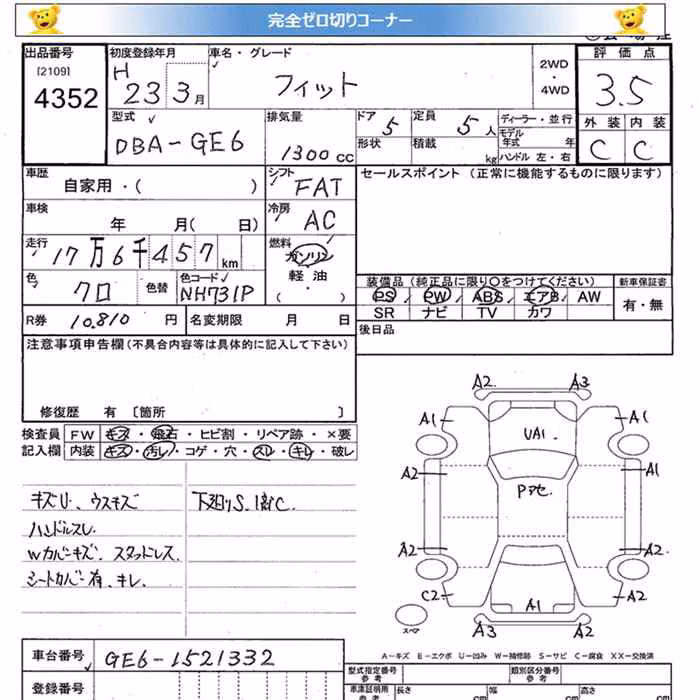 完全ゼロ切りコーナー
出品番号 初度登録年月 車名・グレード 2WD・4WD 評価点
[2109] 4352 H 23 3月 フィット 3.5
型式 排気量 ドア 5 定員 5人 ディーラー・並行 外装 内装
DBA-GE6 1300cc 形状 積載 kg モデル年式 年 C C
ハンドル 左・右
車歴 シフト セールスポイント (正常に機能するものに限ります)
自家用・( ) FAT
車検 冷房
年 月( 日) AC
走行 燃料
17万6千457km ガソリン
軽油
( ・ )
色 色替 色コード 装備品(純正品に限り○をつけてください) 新車保証書
クロ NH731P PS PW ABS エアB AW 有・無
SR ナビ TV カワ
R券 10.810円 名変期限 月 日 後日品
注意事項申告欄(不具合内容等は具体的に記入して下さい)
修復歴 有 [箇所 ]
検査員 FW キズ・飛石・ヒビ割・リペア跡・×要
記入欄 内装 キズ・汚レ・コゲ・穴・スレ・キレ・破レ
キズU、ウスキズ 下廻りS、1部C.
ハンドルスレ
Wカバーキズ スタッドレス
シートカバー有、キレ.
A2 A3
A1 UA1. A1
A2 Pアセ A1
A2 A2
C2 A1 A2
A3 A2
スペア
A-キズ E-エクボ U-凹み W-補修跡 S-サビ C-腐食 XX-交換済
車台番号 GE6-1521332 型式指定番号 参考 類別区分番号 参考
登録番号 車庫証明用 参考 長さ cm 幅 cm 高さ cm